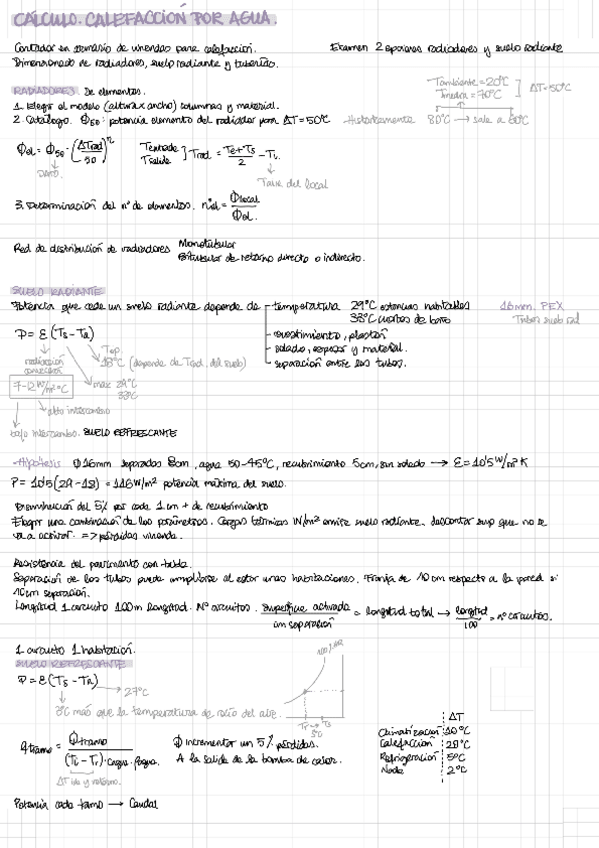 CÁLCULO. CALEFACCIÓN POR AGUA.
Contador en demasío de viviendas para calefacción. Examen 2 opciones radiadores y suelo radiante
Dimensionado de radiadores, suelo radiante y tuberías.
RADIADORES De elementos. Tambiente = 20°C
Tmedia = 70°C ΔT = 50°C
1. Elegir el modelo (altura x ancho) columnas y material.
2. Catálogo. Φ50: potencia elemento del radiador para ΔT = 50°C → Históricamente 80°C → sale a 60°C
Φel = Φ50 · (ΔTrad / 50)^n Tentrada Tsalida } Trad = (Te + Ts) / 2 - Ti
DATO. Taire del local
3. Determinación del nº de elementos. nºel = Φlocal / Φel.
Red de distribución de radiadores Monotubular
Bitubular de retorno directo o indirecto.
SUELO RADIANTE
Potencia que cede un suelo radiante depende de temperatura 29°C estancias habitables 16mm. PEX
33°C cuartos de baño Tubos suelo rad
revestimiento, plastón
P = E (Ts - Ta) solado, espesor y material.
separación entre los tubos.
radiación convección Top 18°C (depende de Trad. del suelo)
7-12 W/m²°C max 29°C
33°C
alto intercambio
bajo intercambio. SUELO REFRESCANTE
Hipótesis Φ16mm separados 8cm, agua 50-45°C, recubrimiento 5cm, sin solado → E = 10'5 W/m²K
P = 10'5 (29 - 18) = 116 W/m² potencia máxima del suelo.
Disminución del 5% por cada 1 cm + de recubrimiento
Elegir una combinación de los parámetros. Cargas térmicas W/m² emite suelo radiante, descontar sup que no se
va a activar. => pérdidas vivienda.
Resistencia del pavimento con tabla.
Separación de los tubos puede ampliarse al estar unas habitaciones. Franja de 10 cm respecto a la pared si
10cm separación.
Longitud 1 circuito 100m longitud. Nº circuitos. superficie activada / cm separación = longitud total → longitud / 100 = nº circuitos.
1 circuito 1 habitación.
SUELO REFRESCANTE 100% HR
P = E (Ts - Ta) → 27°C
3°C más que la temperatura de rocío del aire. Tr → Ts
3°C
ΔT
qtramo = Φtramo / (Ti - Tr) · Cagua · ρagua Φ incrementar un 5% pérdidas. Climatización 10°C
A la salida de la bomba de calor. Calefacción 20°C
Refrigeración 5°C
ΔT ida y retorno. 2°C
Potencia cada tramo → Caudal